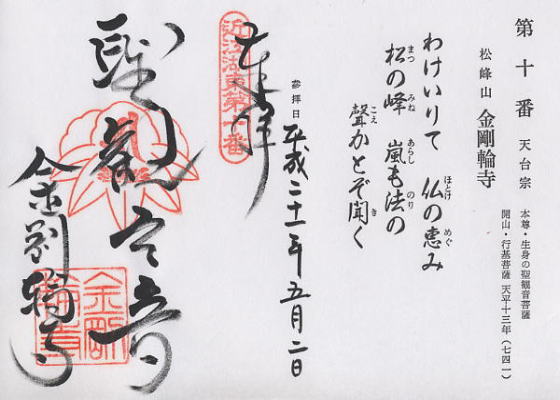 第十番 天台宗 本尊・生身の聖観音菩薩
開山・行基菩薩 天平十三年（七四一）
松峰山 金剛輪寺
わけいりて 仏の恵み
ほとけ めぐ
松の峰 嵐も法の
まつ みね あらし のり
聲かとぞ聞く
こえ き
參拝日 平成二十一年五月二日
奉拝
近江湖東第十番
聖観世音
金剛輪寺
金剛輪寺